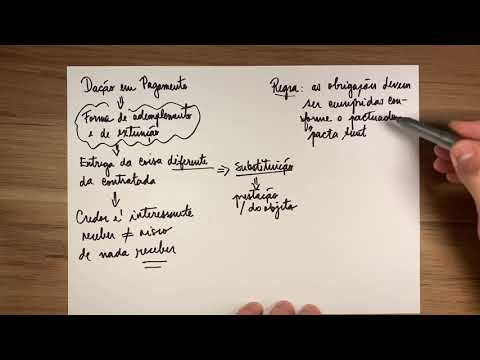 Dação em Pagamento
Forma de adimplemento
e de extinção
Entrega da coisa diferente
da contratada
Credor é interessante
receber ≠ risco
de nada receber
⇒ Substituição
prestação
/ do objeto
Regra: as obrigações devem
ser cumpridas con-
forme o pactuado
"pacta sunt